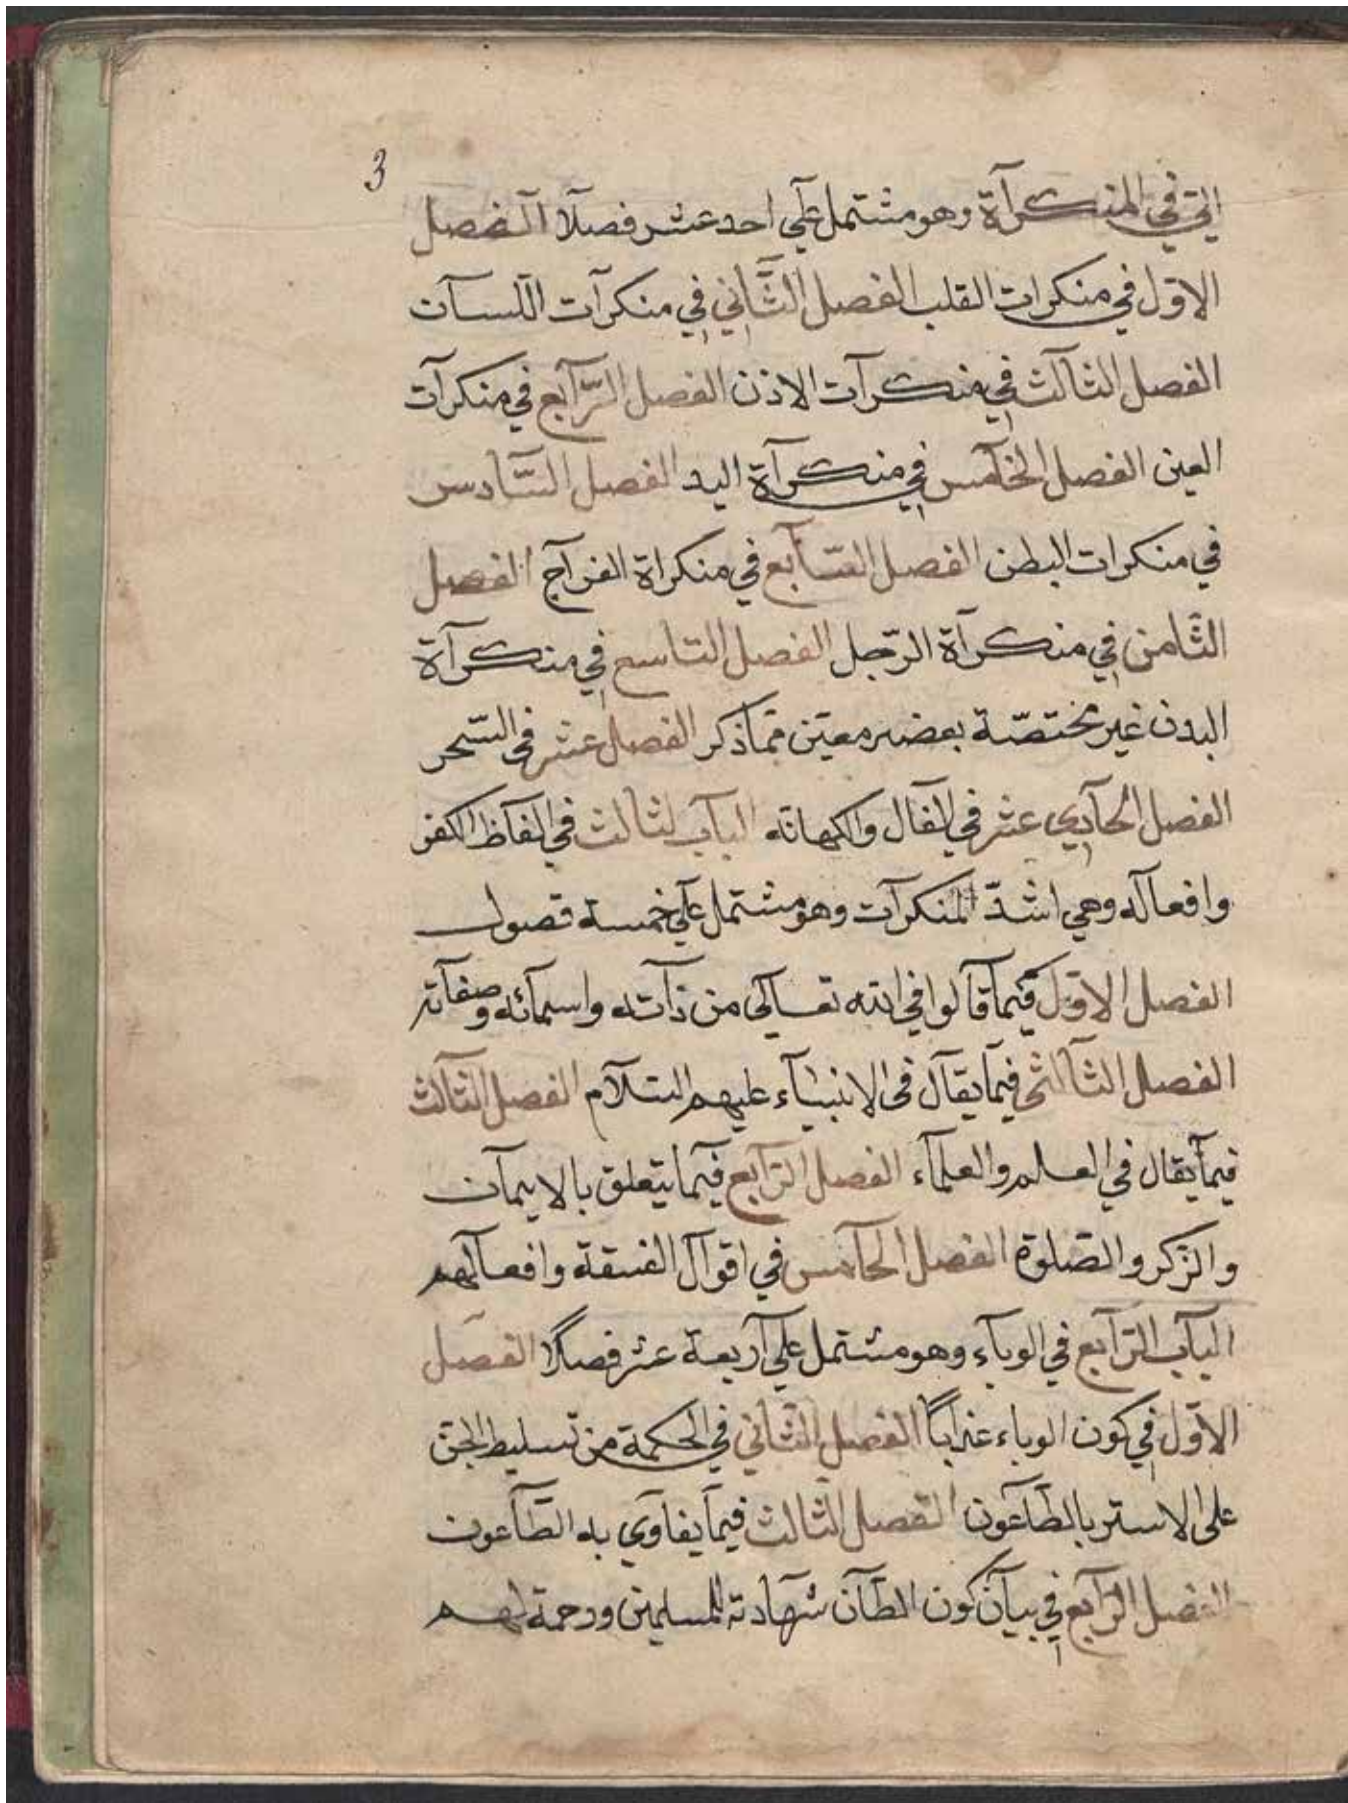 3
الثي في المنكرآة وهو مشتمل علي احد عشر فصلآا الفصل
الاوّل في منكرات القلب الفصل الثّآني في منكرآت اللسآن
الفصل الثآلث في منكرآت الاذن الفصل الرّآبع في منكرآت
العين الفصل الخآمس في منكرآة اليد الفصل السّآدس
في منكرات البطن الفصل السّآبع في منكراة الفرآج الفصل
الثّامن في منكرآة الرّجل الفصل التاسع في منكرآة
البدن غير مختصّة بعضو معيّن ممّا ذكر الفصل عشر في السّحر
الفصل الحآدي عشر في الفال والكهانة البآب الثالث في الفآظ الكفر
وافعآله وهي اشدّ المنكرآت وهو مشتمل علي خمسة فصول
الفصل الاوّل فيمآ قآلوا في الله تعآلى من ذآته واسمآئه وصفآته
الفصل الثآ في فيمآ يقآل في الانبيآء عليهم السّلآم الفصل الثالث
فيمآ يقال في العلم والعلمآء الفصل الرّآبع فيمآ يتعلق بالايمآن
والزكر والصّلوة الفصل الخآمس في اقوآل الفسقة وافعآلهم
البآب الرّآبع في الوبآء وهو مشتمل علي آربعة عشر فصلًا الفصل
الاوّل في كون الوباء عذاباً الفصل الثّاني في الحكمة من تسليط الجنّ
على الانس بالطآعون الفصل الثّالث فيمآ يداوي به الطّآعون
الفصل الرّآبع في بيآن كون الطّآن شهآدة للمسلمين ورحمة لهم